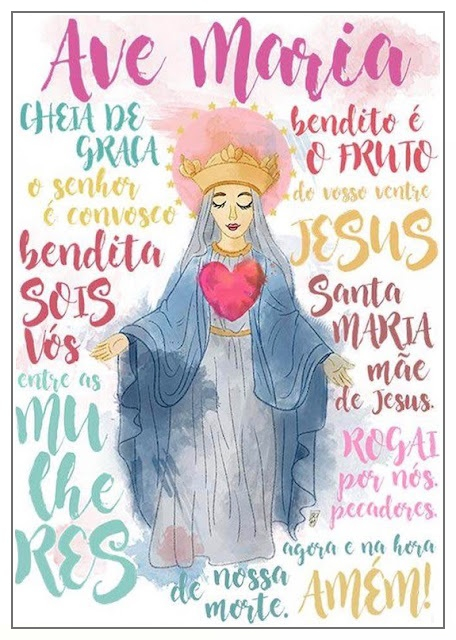 Ave Maria
CHEIA DE
GRAÇA
o senhor
é convosco
bendita
SOIS
Vós
entre as
MU
lhe
RES
bendito é
O FRUTO
do vosso ventre
JESUS
Santa
MARIA
mãe
de Jesus.
ROGAI
por nós.
pecadores.
agora e na hora
de nossa
morte.
AMÉM!